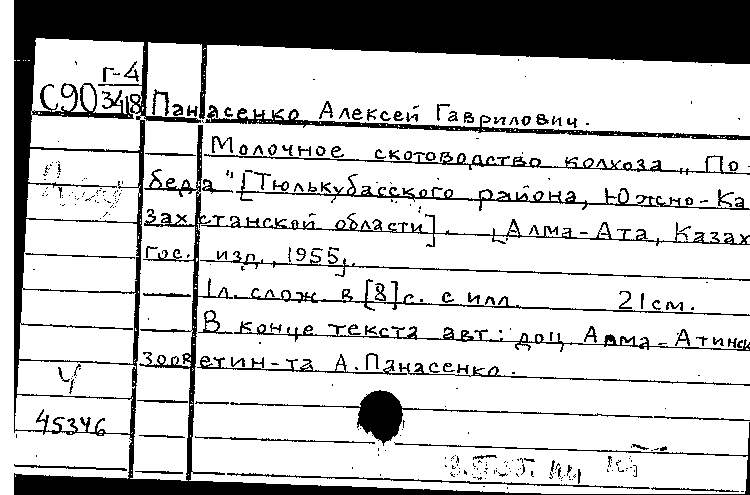 Г-4
С90 3418 Панасенко, Алексей Гаврилович.
Молочное скотоводство колхоза „По-
беда" [Тюлькубасского района, Южно-Ка
захстанской области]. [Алма-Ата, Казах
гос. изд, 1955].
1л. слож. в [8] с. с илл. 21см.
В конце текста авт.: доц Алма-Атинск
зооветин-та А. Панасенко.
Ч
45346